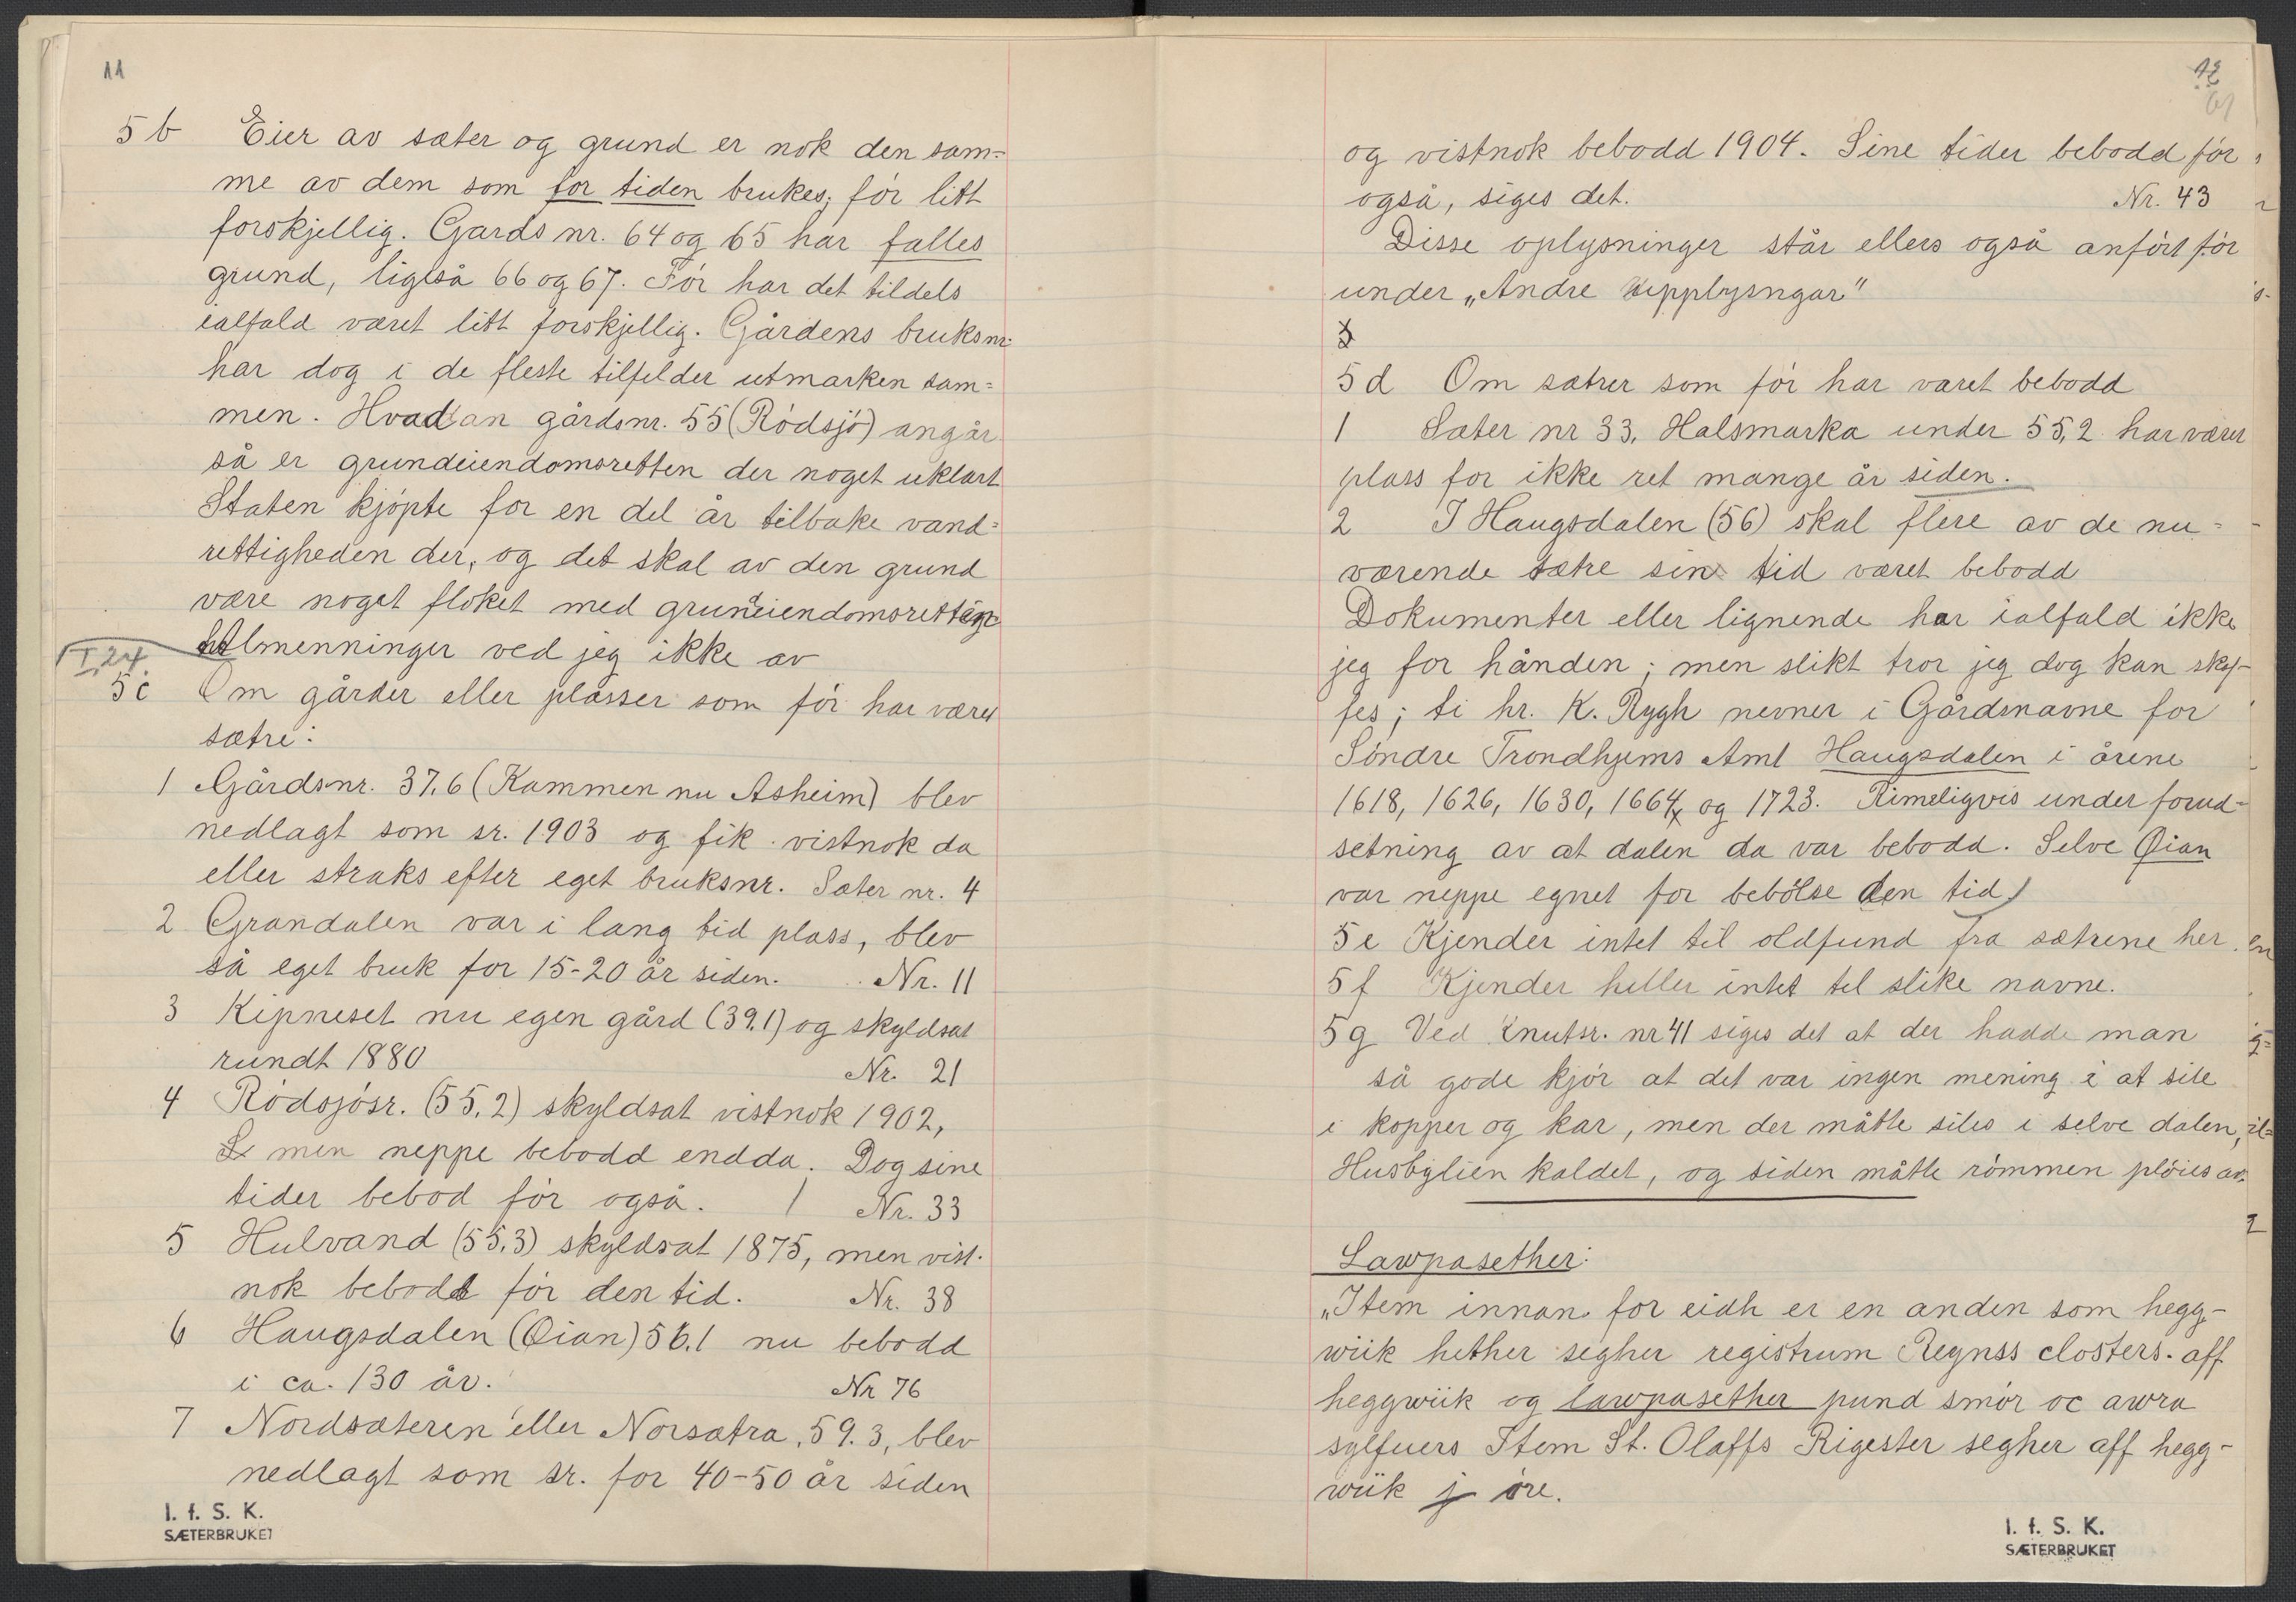 11
5 b Eier av sæter og grund er nok den sam=
me av dem som for tiden brukes, før litt
forskjellig. Gards nr. 64 og 65 har fælles
grund, ligeså 66 og 67. Før har det tildels
ialfald været litt forskjellig. Gårdens bruksnr.
har dog i de fleste tilfelder utmarken sam=
men. Hvad an gårdsnr. 55 (Rødsjø) angår
så er grundeiendomsretten der noget uklart
Staten kjøpte for en del år tilbake vand=
rettigheden der, og det skal av den grund
være noget floket med grundeiendomsretten
Almenninger ved jeg ikke av
I 24.
5 c Om gårder eller plasser som før har været
sætre:
1 Gårdsnr. 37,6 (Kammen nu Åsheim) blev
nedlagt som sr. 1903 og fik vistnok da
eller straks efter eget bruksnr. Sæter nr. 4
2 Grandalen var i lang tid plass, blev
så eget bruk for 15-20 år siden. Nr. 11
3 Kipneset nu egen gård (39.1) og skyldsat
rundt 1880 Nr. 21
4 Rødsjøsr. (55.2) skyldsat vistnok 1902,
men neppe bebodd endda. Dog sine
tider bebod før også. Nr. 33
5 Hulvand (55,3) skyldsat 1875, men vist-
nok bebodd før den tid. Nr. 38
6 Haugsdalen (Øian) 56.1 nu bebodd
i ca. 130 år. Nr 76
7 Nordsæteren eller Norsætra, 59.3, blev
nedlagt som sr. for 40-50 år siden
I. f. S. K.
SÆTERBRUKET
12
og vistnok bebodd 1904. Sine tider bebodd før
også, siges det. Nr. 43
Disse oplysninger står ellers også anført før
under „Andre upplysngar"
5 d Om sætrer som før har været bebodd
1 Sæter nr 33, Halsmarka under 55,2 har været
plass for ikke ret mange år siden.
2 I Haugsdalen (56) skal flere av de nu=
værende sætre sin tid været bebodd
Dokumenter eller lignende har ialfald ikke
jeg for hånden; men slikt tror jeg dog kan skaf-
fes; ti hr. K. Rygh nevner i Gårdsnavne for
Søndre Trondhjems Amt Haugsdalen i årene
1618, 1626, 1630, 1664, og 1723. Rimeligvis under forud=
setning av at dalen da var bebodd. Selve Øian
var neppe egnet for bebølse den tid
5 e Kjender intet til oldfund fra sætrene her.
5 f Kjender heller intet til slike navne.
5 g Ved Knutsr. nr 41 siges det at der hadde man
så gode kjør at det var ingen mening i at sile
i kopper og kar, men der måtte siles i selve dalen,
Husbylien kaldet, og siden måtte rømmen pløies av.
Lawpasether:
„Item innan for eidh er en anden som hegg-
wiik hether segher registrum Reynss closters. aff
heggwiik og lawpasether pund smør oc awra
sylfuers Item St. Olaffs Rigester segher aff hegg-
wiik j øre.
I. f. S. K.
SÆTERBRUKET